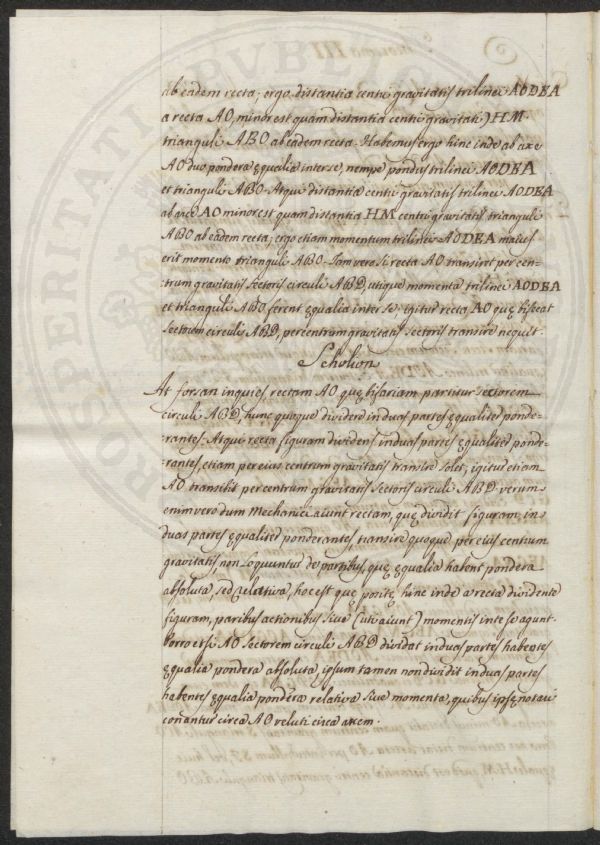 ab eadem recta; ergo distantia centri gravitatis trilinei AODEA
a recta AO, minor est quam distantia centri gravitatis HM
trianguli ABO ab eadem recta. Habemus ergo hinc inde ab axe
AO duo pondera ęqualia inter se, nempe pondus trilinei AODEA
et trianguli ABO. Atqui distantia centri gravitatis trilinei AODEA
ab axe AO minor est quam distantia HM centri gravitatis trianguli
ABO ab eadem recta; ergo etiam momentum trilinei AODEA maius
erit momento trianguli ABO. Iam vero si recta AO transiret per cen-
trum gravitatis sectoris circuli ABD, utique momenta trilinei AODEA
et trianguli ABO forent ęqualia inter se, igitur recta AO quę bisecat
sectorem circuli ABD, per centrum gravitatis sectoris transire nequit.
Scholion
At forsan inquies rectam AO, quę bifariam partitur sectorem
circuli ABD, hunc quoque dividere in duas partes ęqualiter ponde-
rantes. Atqui recta figuram dividens in duas partes ęqualiter ponde-
rantes, etiam per eius centrum gravitatis transire solet; igitur etiam
AO transibit per centrum gravitatis sectoris circuli ABD. verum
enim vero dum Mechanici aiunt rectam, quę dividit figuram in
duas partes ęqualiter ponderantes, transire quoque per eius centrum
gravitatis, non loquuntur de partibus, quę ęqualia habent pondera
absoluta, sed relativa, hoc est quę positę hinc inde a recta dividente
figuram, paribus actionibus sive (uti aiunt) momentis inter se agunt.
Porro etsi AO sectorem circuli ABD dividat in duas partes habentes
ęqualia pondera absoluta, ipsum tamen non dividit in duas partes
habentes ęqualia pondera relativa sive momenta, quibus ipsę rotari
conantur circa AO veluti circa axem.